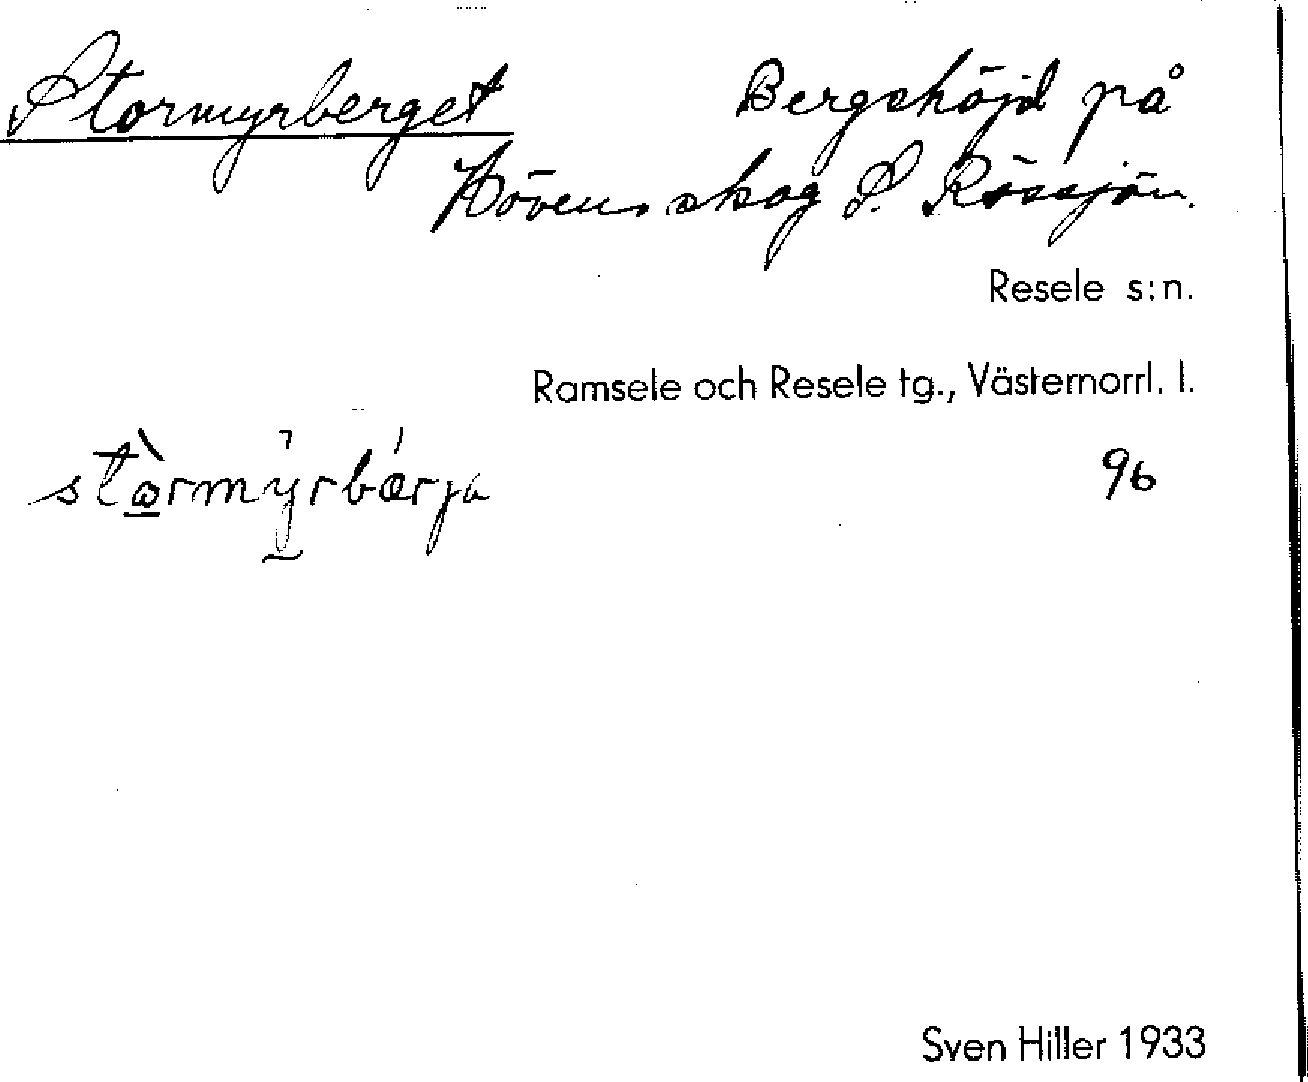 Stormyrberget Bergshöjd på
Hövens skog S. Rössjön.
Resele s:n.
Ramsele och Resele tg., Västernorrl. l.
96
Sven Hiller 1933